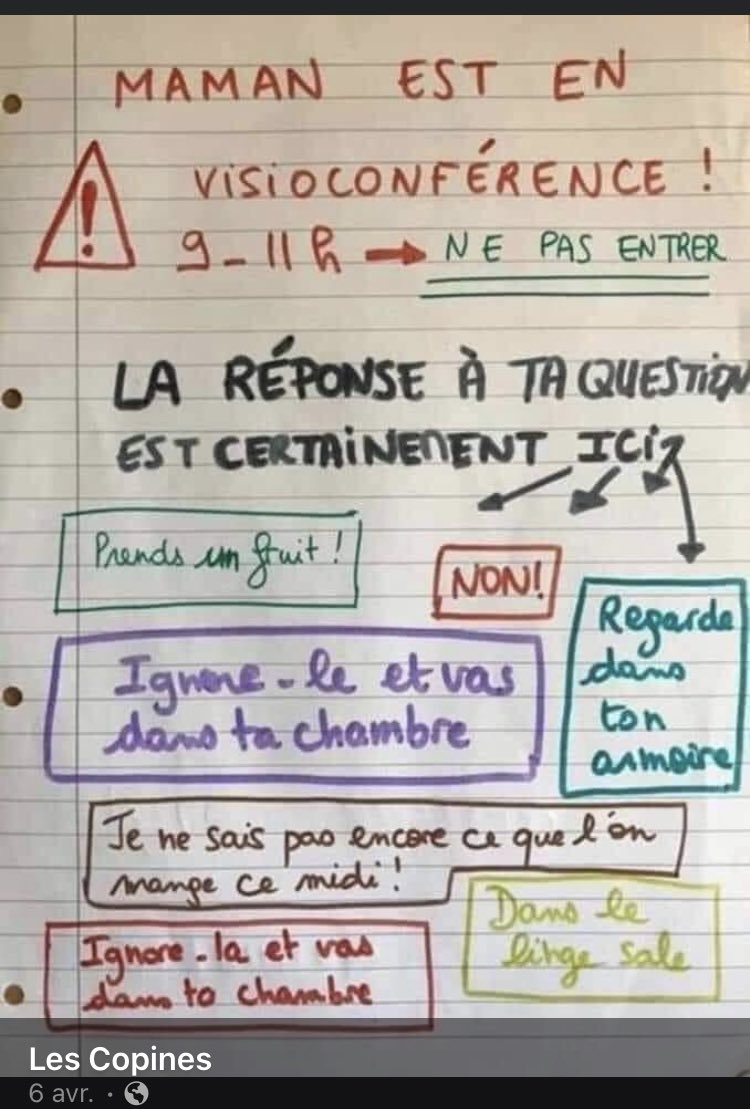 MAMAN EST EN
VISIOCONFÉRENCE !
9-11h → NE PAS ENTRER
LA RÉPONSE À TA QUESTION
EST CERTAINEMENT ICI
Prends un fruit !
NON!
Regarde
dans
ton
armoire
Ignore-le et vas
dans ta chambre
Je ne sais pas encore ce que l'on
mange ce midi !
Dans le
linge sale
Ignore-la et vas
dans ta chambre
Les Copines
6 avr. ·